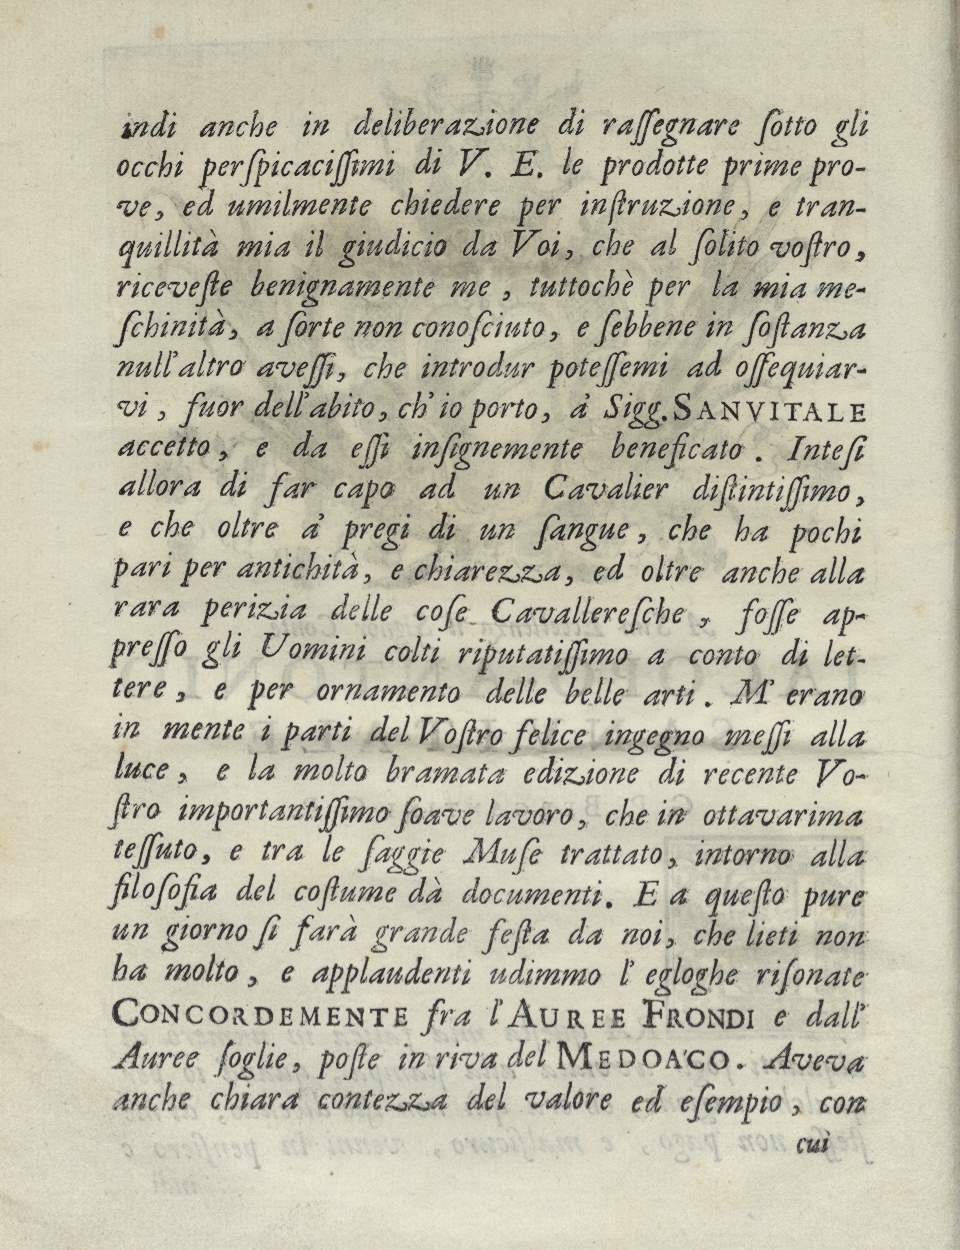 indi anche in deliberazione di raſſegnare ſotto gli
occhi perſpicaciſſimi di V. E. le prodotte prime pro-
ve, ed umilmente chiedere per inſtruzione, e tran-
quillità mia il giudicio da Voi, che al ſolito voſtro,
riceveſte benignamente me, tuttochè per la mia me-
ſchinità, a ſorte non conoſciuto, e ſebbene in ſoſtanza
null'altro aveſſi, che introdur poteſſemi ad oſſequiar-
vi, fuor dell'abito, ch'io porto, a' Sigg. SANVITALE
accetto, e da eſſi inſignemente beneficato. Inteſi
allora di far capo ad un Cavalier diſtintiſſimo,
e che oltre a' pregi di un ſangue, che ha pochi
pari per antichità, e chiarezza, ed oltre anche alla
rara perizia delle coſe Cavallereſche, foſſe ap-
preſſo gli Uomini colti riputatiſſimo a conto di let-
tere, e per ornamento delle belle arti. M' erano
in mente i parti del Voſtro felice ingegno meſſi alla
luce, e la molto bramata edizione di recente Vo-
ſtro importantiſſimo ſoave lavoro, che in ottavarima
teſſuto, e tra le ſaggie Muſe trattato, intorno alla
filoſofia del coſtume dà documenti. E a queſto pure
un giorno ſi farà grande feſta da noi, che lieti non
ha molto, e applaudenti udimmo l' egloghe riſonate
CONCORDEMENTE fra l'AUREE FRONDI e dall'
Auree foglie, poſte in riva del MEDOACO. Aveva
anche chiara contezza del valore ed eſempio, con
cui